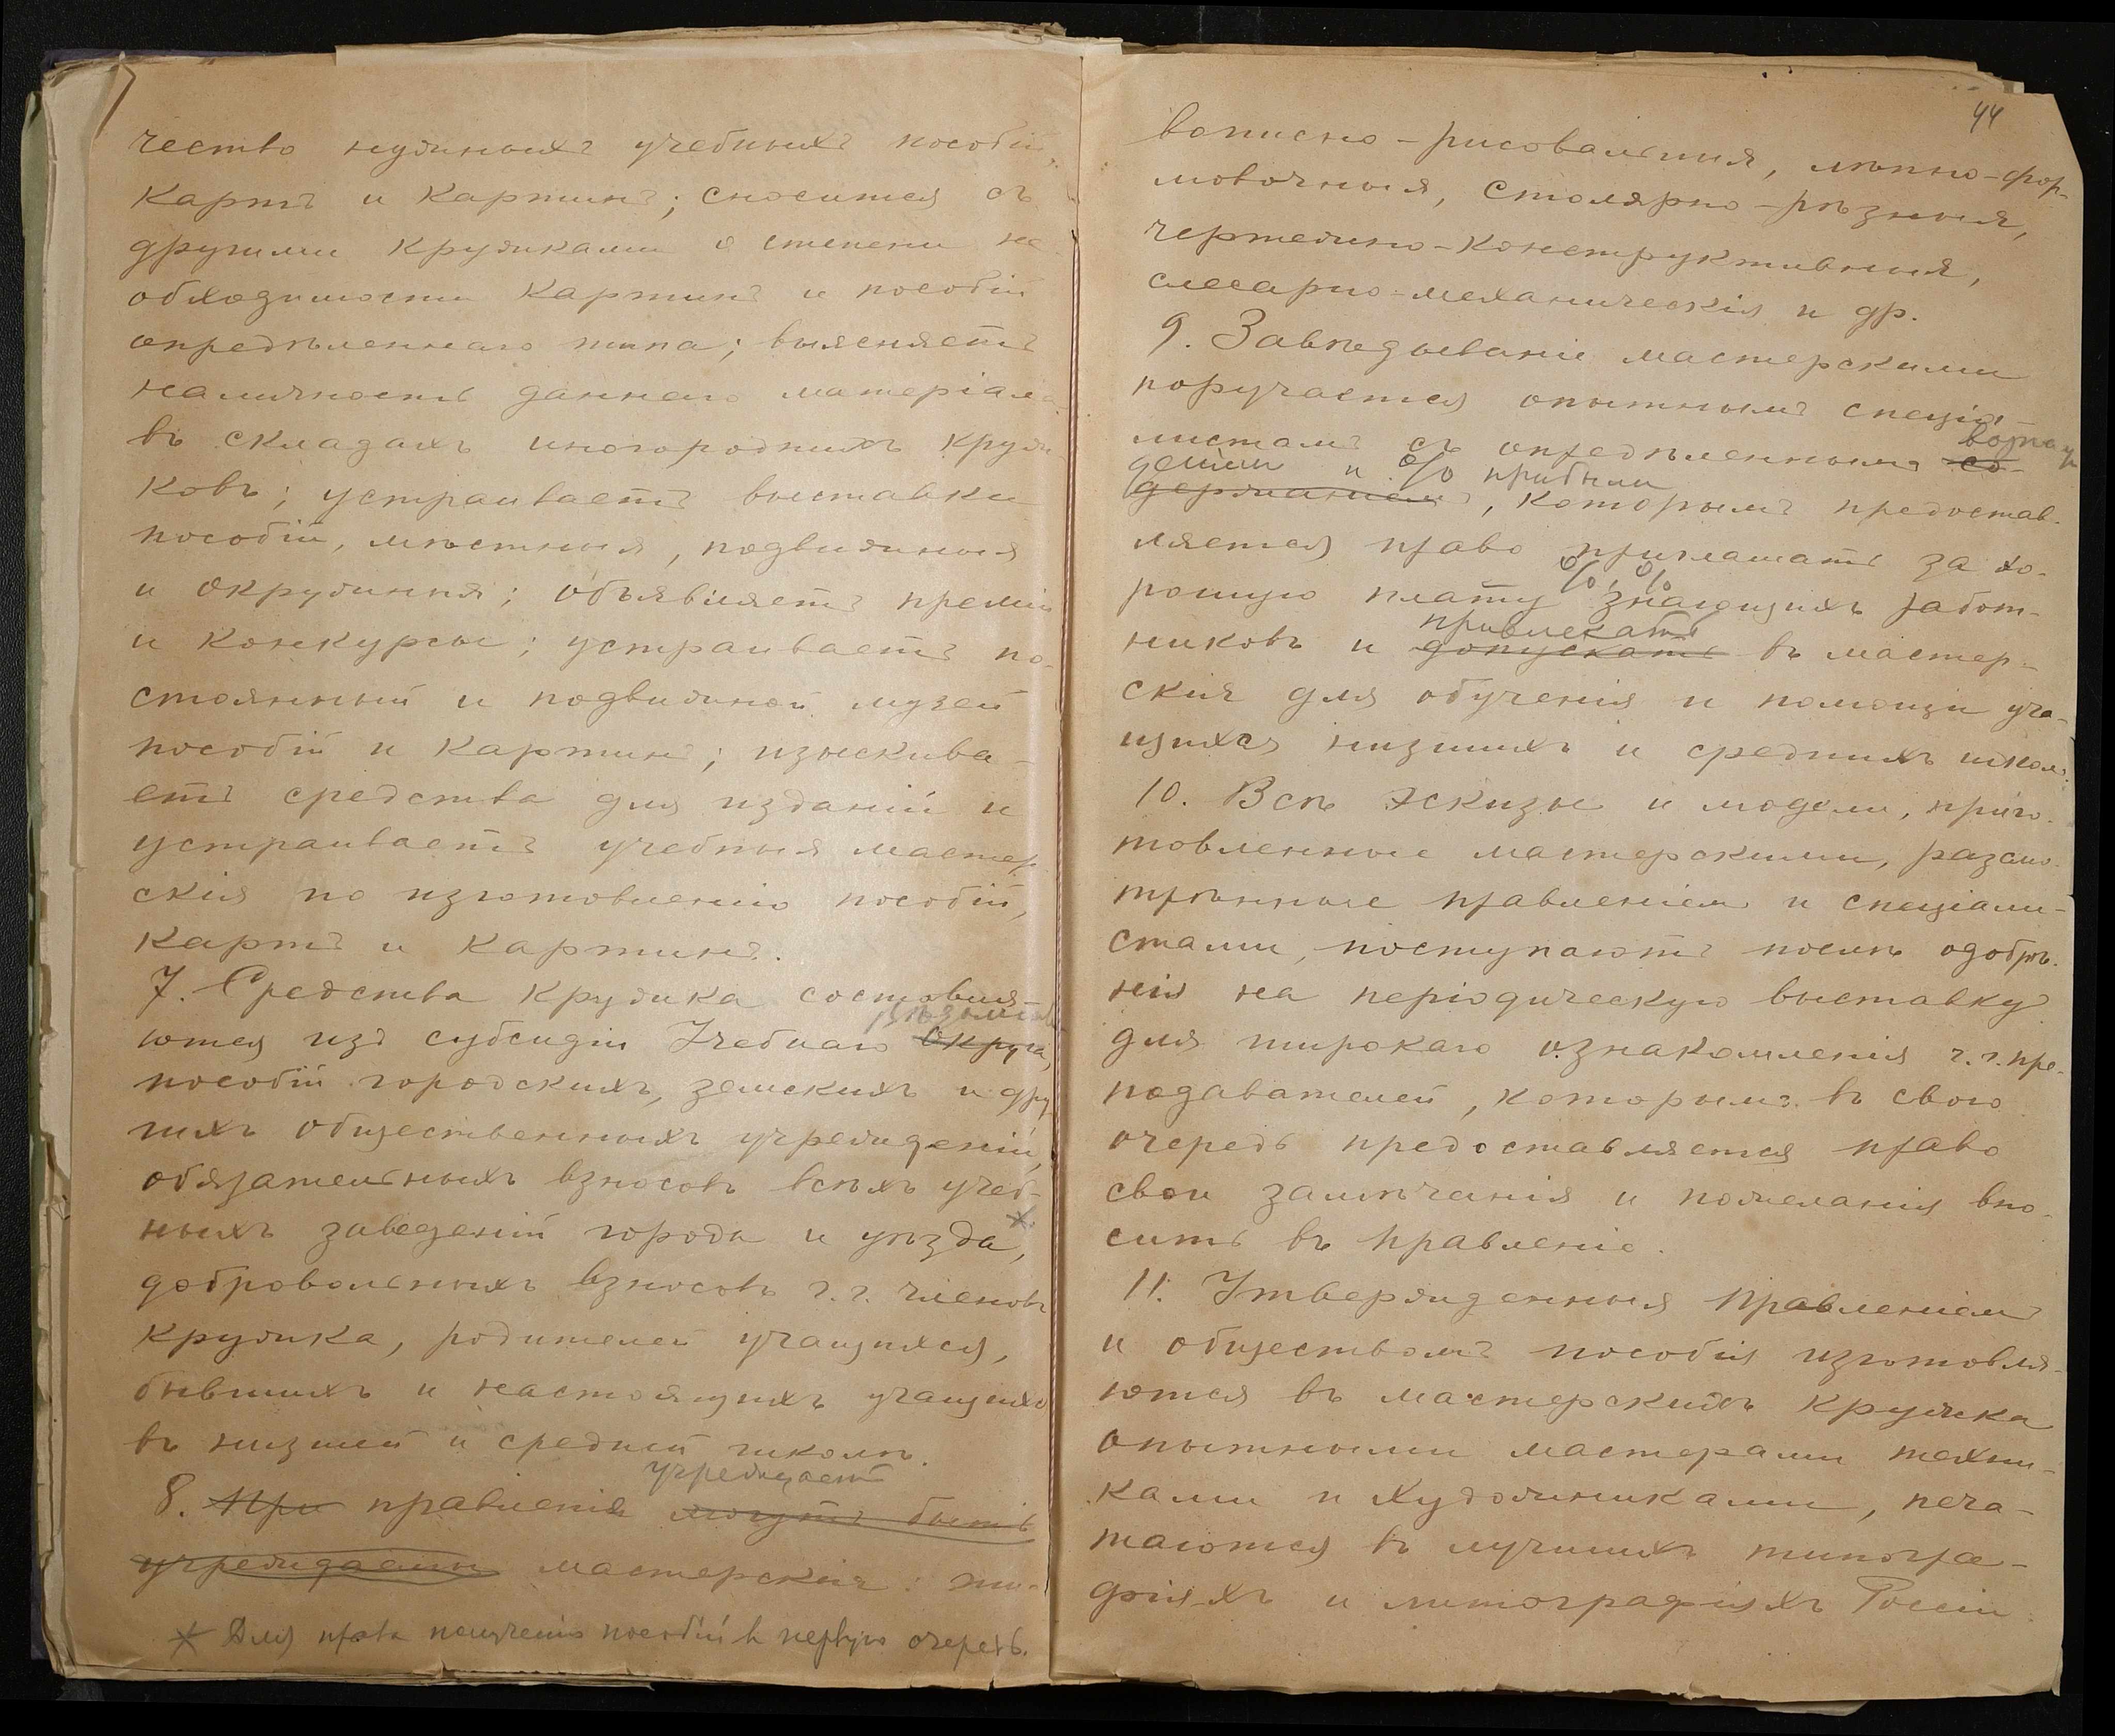 чество нужныхъ учебныхъ пособій,
картъ и картинъ; сносится съ
другими кружками о степени не-
обходимости картинъ и пособій
опредѣленнаго типа; выясняетъ
наличность даннаго матеріала
въ складахъ иногороднихъ круж-
ковъ; устраиваетъ выставки
пособій, мѣстныя, подвижныя
и окружныя; объявляетъ преміи
и конкурсы; устраиваетъ по-
стоянный и подвижной музей
пособій и картинъ; изыскива-
етъ средства для изданій и
устраиваетъ учебныя мастер
скія по изготовленію пособій,
картъ и картинъ.
7. Средства кружка составля-
ются изъ субсидіи Учебнаго округа,
пособій городскихъ, земскихъ и дру
гихъ общественныхъ учрежденій,
обязательныхъ взносовъ всѣхъ учеб-
ныхъ заведеній города и уѣзда*,
добровольныхъ взносовъ г.г. членовъ
кружка, родителей учащихся,
бывшихъ и настоящихъ учащихъ
въ низшей и средней школѣ.
учреждаетъ
8. При правленія могутъ быть
учреждаемы мастерскія: жи-
* Для права полученія пособій въ первую очередь.
44
вописно-рисовальныя, лѣпно-фор-
мовочныя, столярно-рѣзныя,
чертежно-конструктивныя,
слесарно-механическія и др.
9. Завѣдываніе мастерскими
поручается опытнымъ спеціа-
листамъ съ опредѣленнымъ со-
и % прибыли
держаніемъ, которымъ предостав-
ляется право приглашать за хо-
% %
рошую плату знающихъ работ-
привлекать
никовъ и допускать въ мастер-
скія для обученія и помощи уча-
щихся низшихъ и среднихъ школъ.
10. Всѣ эскизы и модели, приго-
товленные мастерскими, разсмо-
трѣнные правленіемъ и спеціали-
стами, поступаютъ послѣ одобре-
нія на періодическую выставку
для широкаго ознакомленія г.г. пре-
подавателей, которымъ въ свою
очередь предоставляется право
свои замѣчанія и пожеланія вно-
сить въ правленіе.
11. Утвержденныя Правленіемъ
и обществомъ пособія изготовля-
ются въ мастерскихъ кружка
опытными мастерами техни-
ками и художниками, печа-
таются въ лучшихъ типогра-
фіяхъ и литографіяхъ Россіи.